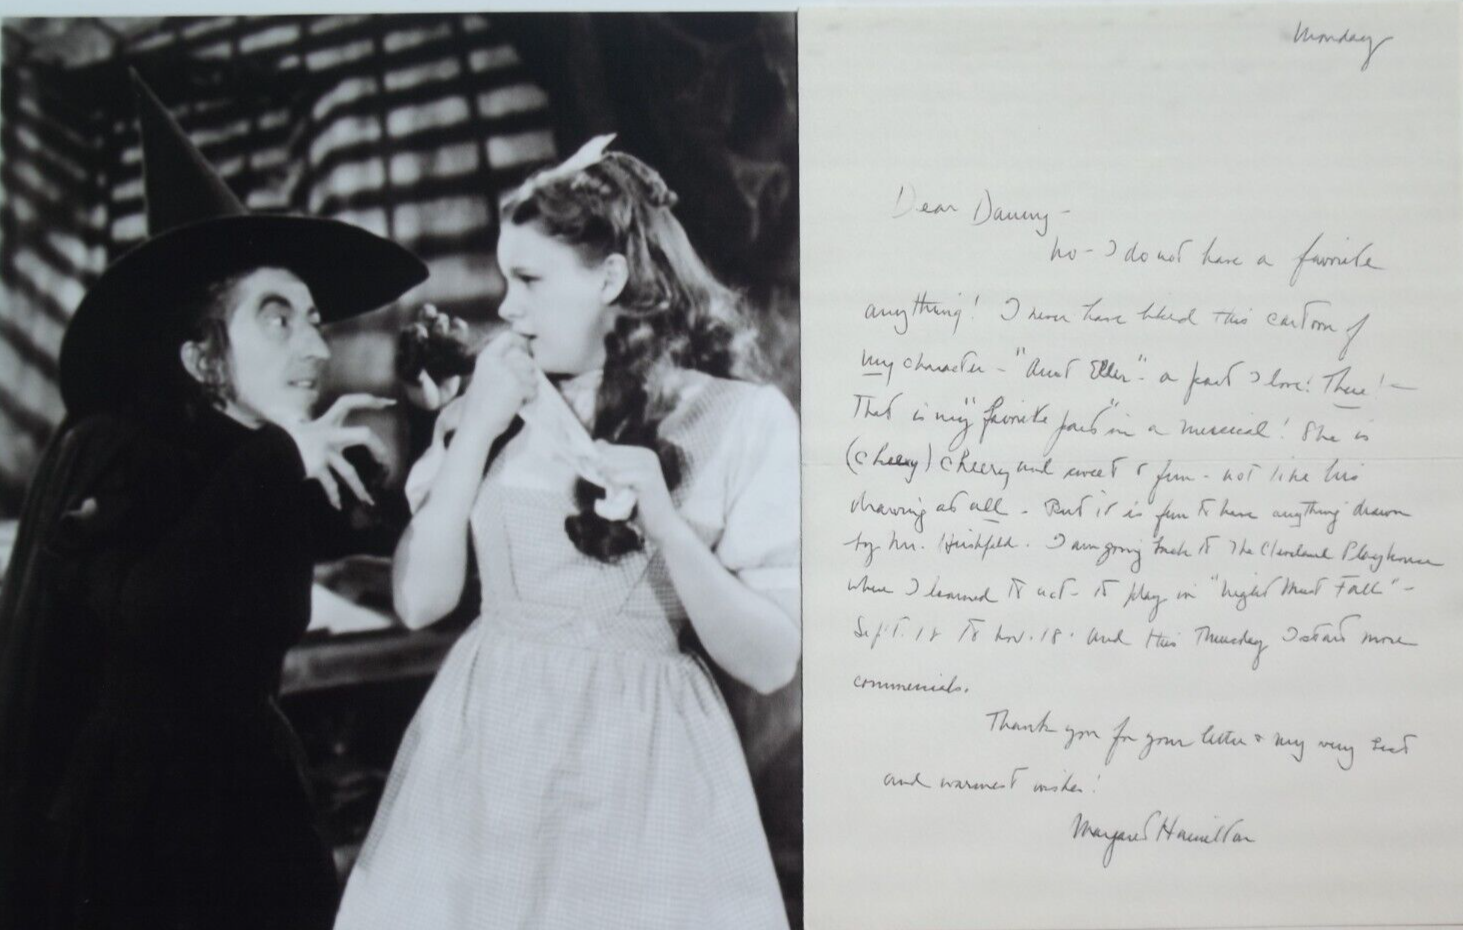 Monday
Dear Danny -
No - I do not have a favorite
anything! I never have liked this cartoon of
my character - "Aunt Eller" - a part I love! There! -
That is my "favorite part" in a musical! She is
(cheery) cheery and sweet & fun - not like his
drawing at all. But it is fun to have anything drawn
by Mr. Hirshfeld. I am going back to The Cleveland Playhouse
where I learned to act - to play in "Night Must Fall" -
Sept. to Nov. 18. and this Thursday I start more
commercials.
Thank you for your letter & my very best
and warmest wishes!
Margaret Hamilton